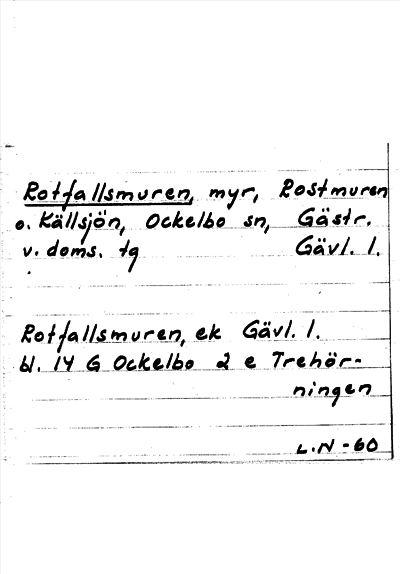 Rotfallsmuren, myr, Rostmuren
o. Källsjön, Ockelbo sn, Gästr.
v. doms. tg Gävl. l.
Rotfallsmuren, ek Gävl. l.
bl. 14 G Ockelbo 2 e Trehör-
ningen
L.N -60